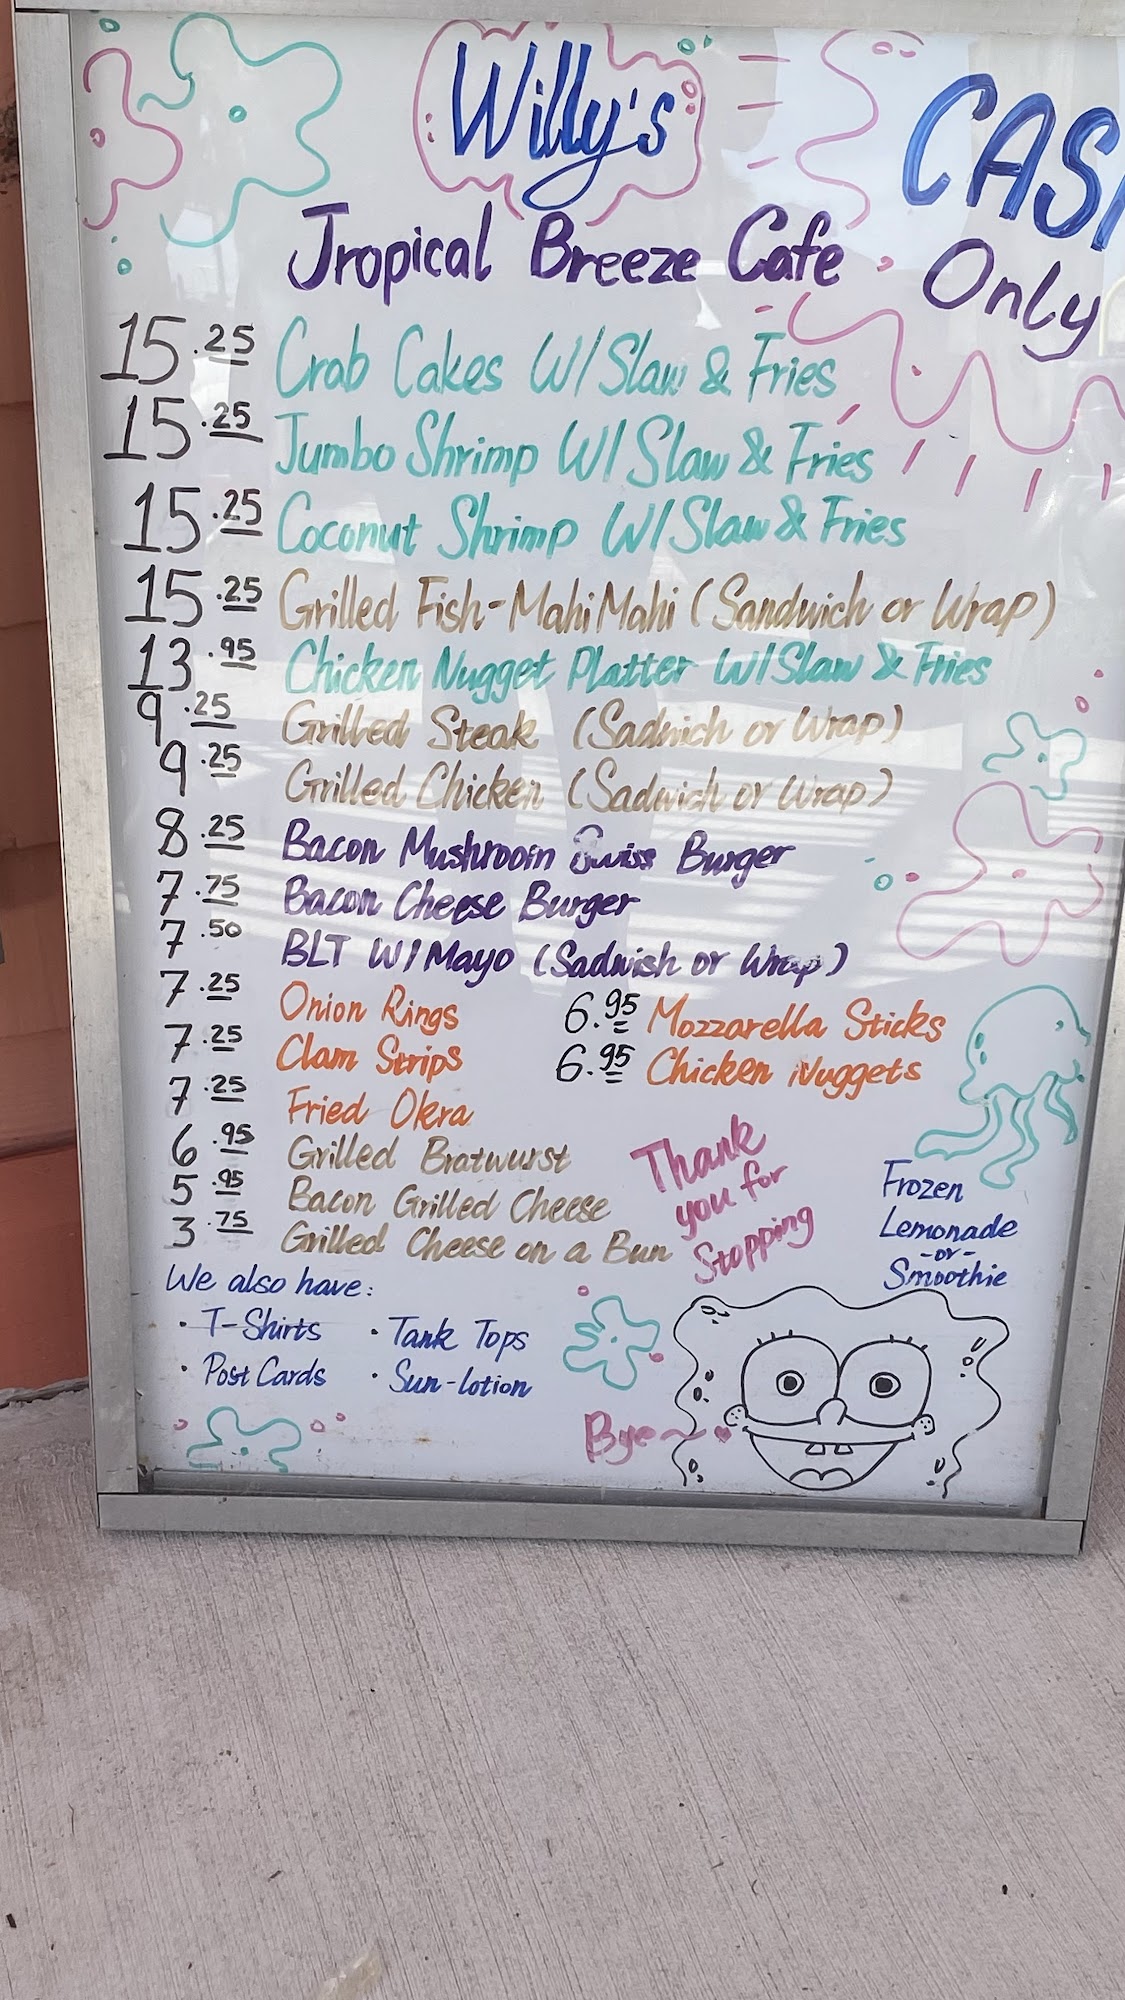 Willy's
CAS
Tropical Breeze Cafe
Only
15.25 Crab Cakes W/Slaw & Fries
15.25 Jumbo Shrimp W/Slaw & Fries
15.25 Coconut Shrimp W/Slaw & Fries
15.25 Grilled Fish-Mahi Mahi (Sandwich or Wrap)
13.95 Chicken Nugget Platter W/Slaw & Fries
9.25 Grilled Steak (Sadwich or Wrap)
9.25 Grilled Chicken (Sadwich or Wrap)
8.25 Bacon Mushroom Swiss Burger
7.75 Bacon Cheese Burger
7.50 BLT W/Mayo (Sadwish or Wrap)
7.25 Onion Rings 6.95 Mozzarella Sticks
7.25 Clam Strips 6.95 Chicken Nuggets
7.25 Fried Okra
6.95 Grilled Bratwurst
5.95 Bacon Grilled Cheese
3.75 Grilled Cheese on a Bun
Thank
you for
Stopping
Frozen
Lemonade
-or-
Smoothie
We also have:
· T-Shirts · Tank Tops
· Post Cards · Sun-lotion
Bye~